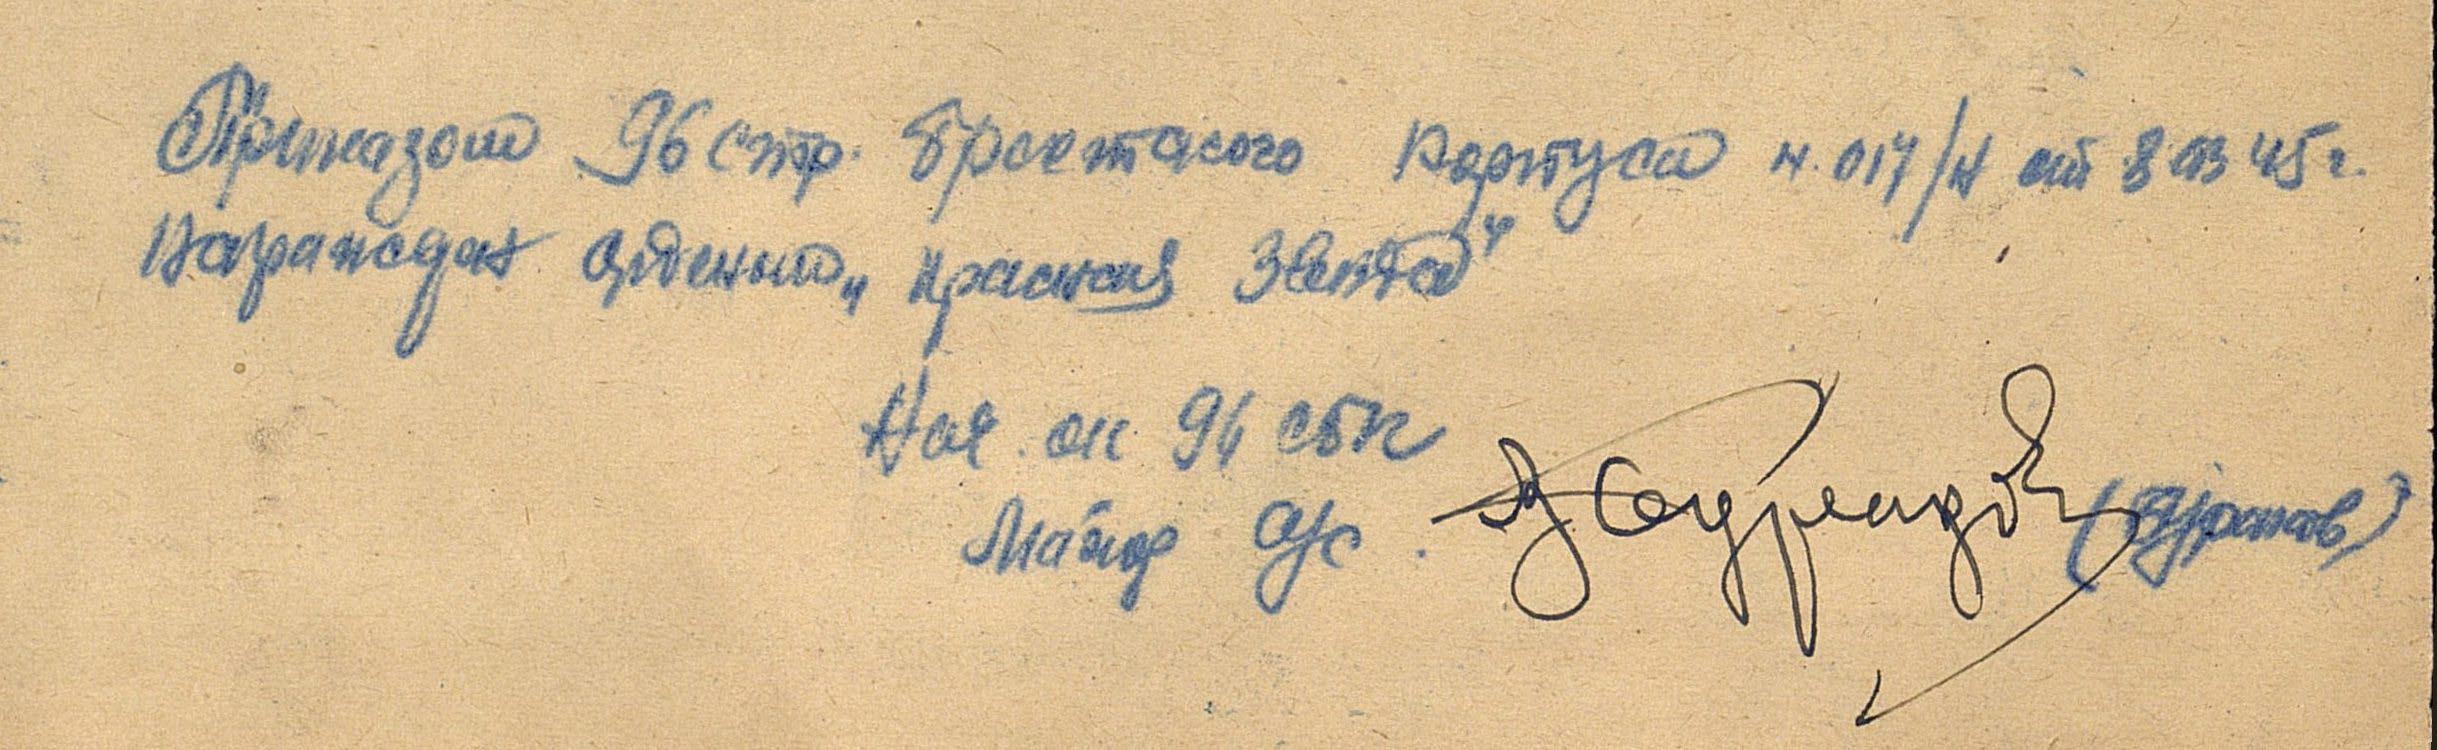 Приказом 96 стр. Брестского корпуса н. 017/н от 8 03 45 г.
Награжден Орденом „Красная Звезда"
Нач. ок 96 сбк
Майор а/с